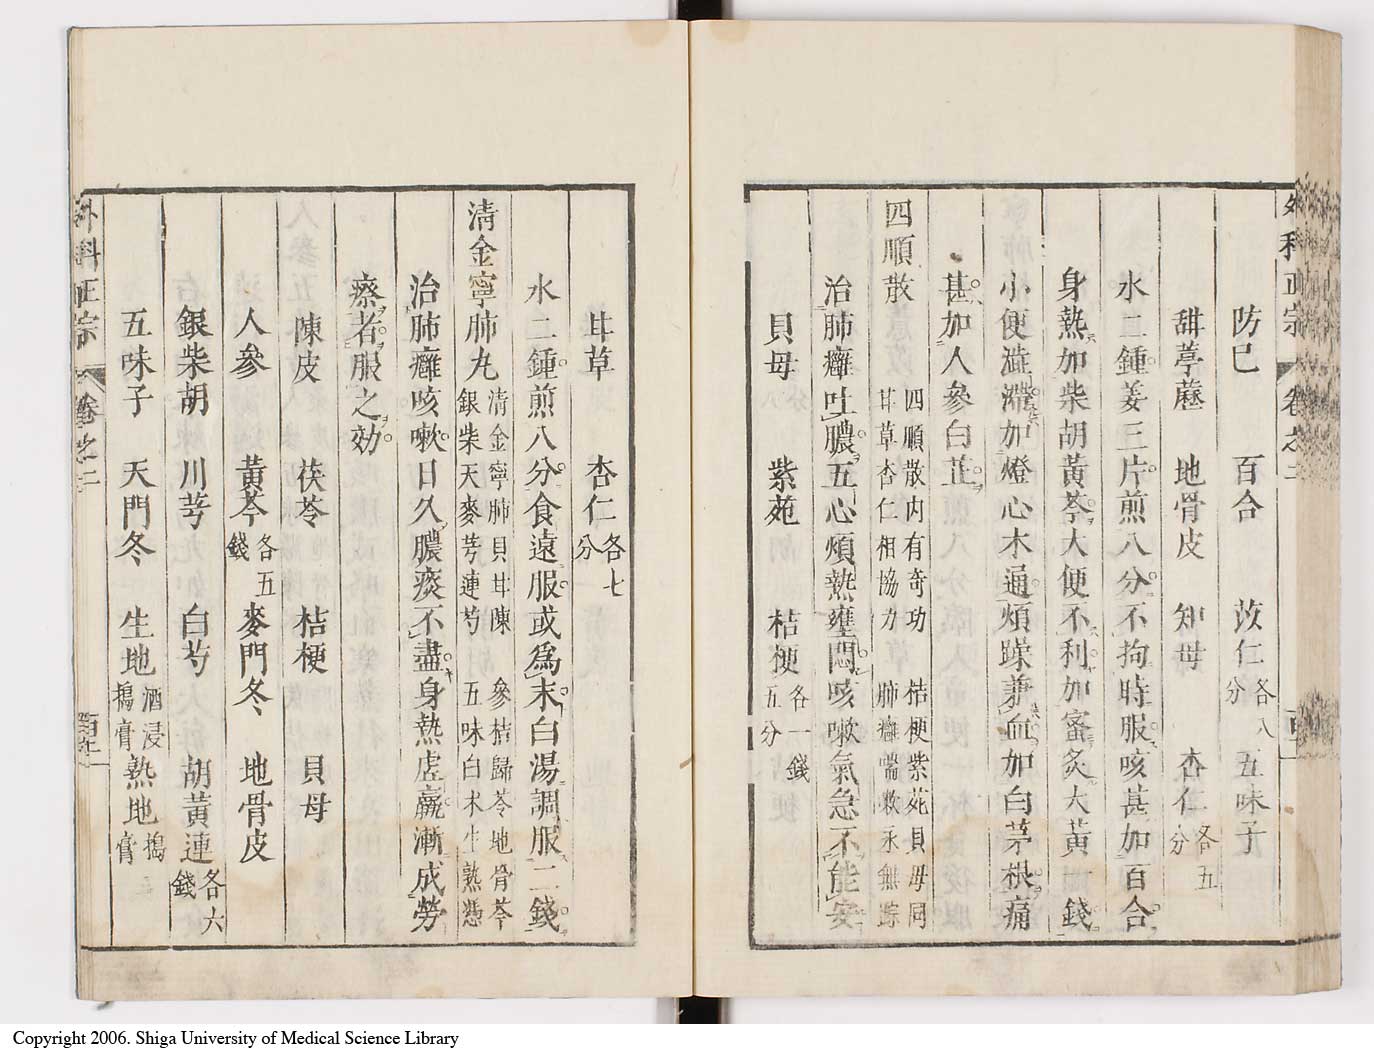 外科正宗 卷之二
防己 百合 苡仁各八分 五味子
甜葶藶 地骨皮 知母 杏仁各五分
水二鍾姜三片煎八分不拘時服咳甚加百合
身熱加柴胡黃芩大便不利加蜜炙大黃一錢
小便澁滯加燈心木通煩躁兼血加白茅根痛
甚加人參白芷
四順散 四順散内有奇功 桔梗紫苑貝母同
甘草杏仁相協力 肺癰喘嗽永無踪
治肺癰吐膿五心煩熱壅悶咳嗽氣急不能安
貝母 紫苑 桔梗各一錢五分
甘草 杏仁各七分
水二鍾煎八分食遠服或為末白湯調服二錢
清金寧肺丸 清金寧肺貝甘陳 參桔歸苓地骨芩
銀柴天麥芎連芍 五味白朮生熟憑
治肺癰咳嗽日久膿痰不盡身熱虛羸漸成勞
瘵者服之効
陳皮 茯苓 桔梗 貝母
人參 黃芩各五錢 麥門冬 地骨皮
銀柴胡 川芎 白芍 胡黃連各六錢
五味子 天門冬 生地酒浸搗膏 熟地搗膏
外科正宗 卷之二
Copyright 2006. Shiga University of Medical Science Library